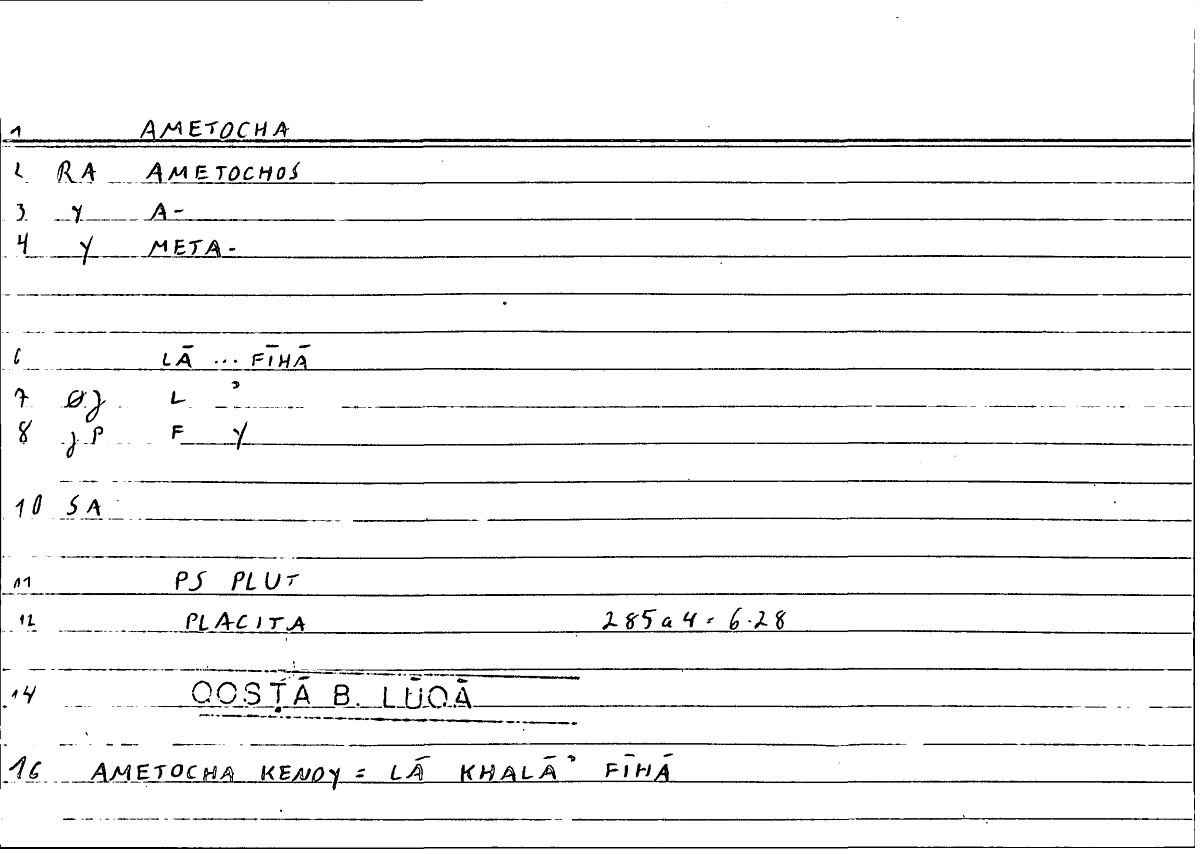 1 AMETOCHA
2 RA AMETOCHOS
3 Y A-
4 Y META-
6 LĀ ... FĪHĀ
7 ØJ L ʾ
8 JP F Y
10 SA
11 PS PLUT
12 PLACITA 285a4 = 6.28
14 QOSṬĀ B. LŪQĀ
16 AMETOCHA KENOY = LĀ KHALĀʾ FĪHĀ